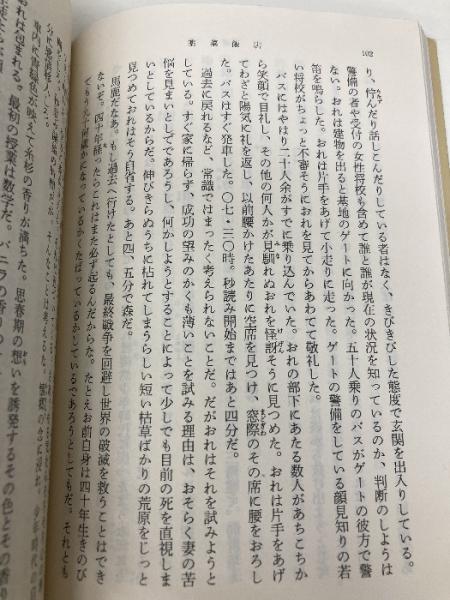 102
薬菜飯店
り、佇んだり話しこんだりしている者はなく、きびきびした態度で玄関を出入りしている。
警備の者や受付の女性将校も含めて誰と誰が現在の状況を知っているのか、判断のしようは
ない。おれは建物を出ると基地のゲートに向かった。五十人乗りのバスがゲートの彼方で警
笛を鳴らした。おれは片手をあげて小走りに走った。ゲートの警備をしている顔見知りの若
い将校がちょっと不審そうにおれを見てからあわてて敬礼した。
バスにはやはり二十人余がすでに乗り込んでいた。おれの部下にあたる数人があちこちか
ら笑顔で目礼し、その他の何人かが見馴れぬおれを怪訝そうに見つめた。おれは片手をあげ
てわざと陽気に礼を返し、以前腰かけたあたりに空席を見つけ、窓際のその席に腰をおろし
た。バスはすぐ発車した。〇七・三〇時。秒読み開始まではあと四分だ。
過去に戻れるなど、常識ではまったく考えられないことだ。だがおれはそれを試みようと
している。すぐ家に帰らず、成功の望みのかくも薄いことを試みる理由は、おそらく妻の苦
悩を見まいとしてであろうし、何かしようとすることによって少しでも目前の死を直視しま
いとしているからだ。伸びきらぬうちに枯れてしまうらしい短い枯草ばかりの荒原をじっと
見つめておれはそう自省する。あと四、五分で森だ。
馬鹿だなあ。もし過去へ行けたとしても、最終戦争を回避し世界の破滅を救うことはでき
ないぞ。四十年経ったらこれはまた必ず起るんだからな。たとえお前自身は四十年生きのび
くたばっているかしているであろうとしてもだ。それとも
香りが満ちた。思春期の想いを誘発するその色とその香り
おれは包まれる。最初の授業は数学だ。バニラの香りの